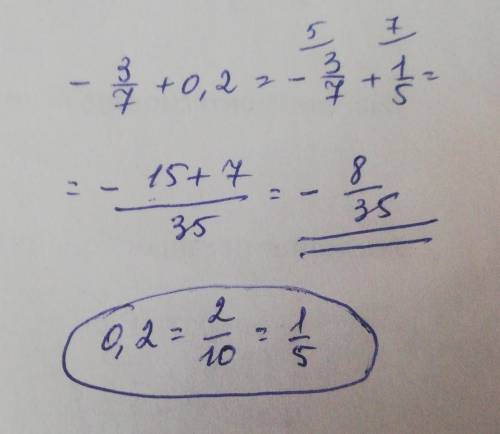 - 3/7 + 0,2 = - 3/7 ⁵ + 1/5 ⁷ =
= - 15 + 7 / 35 = - 8/35
0,2 = 2/10 = 1/5